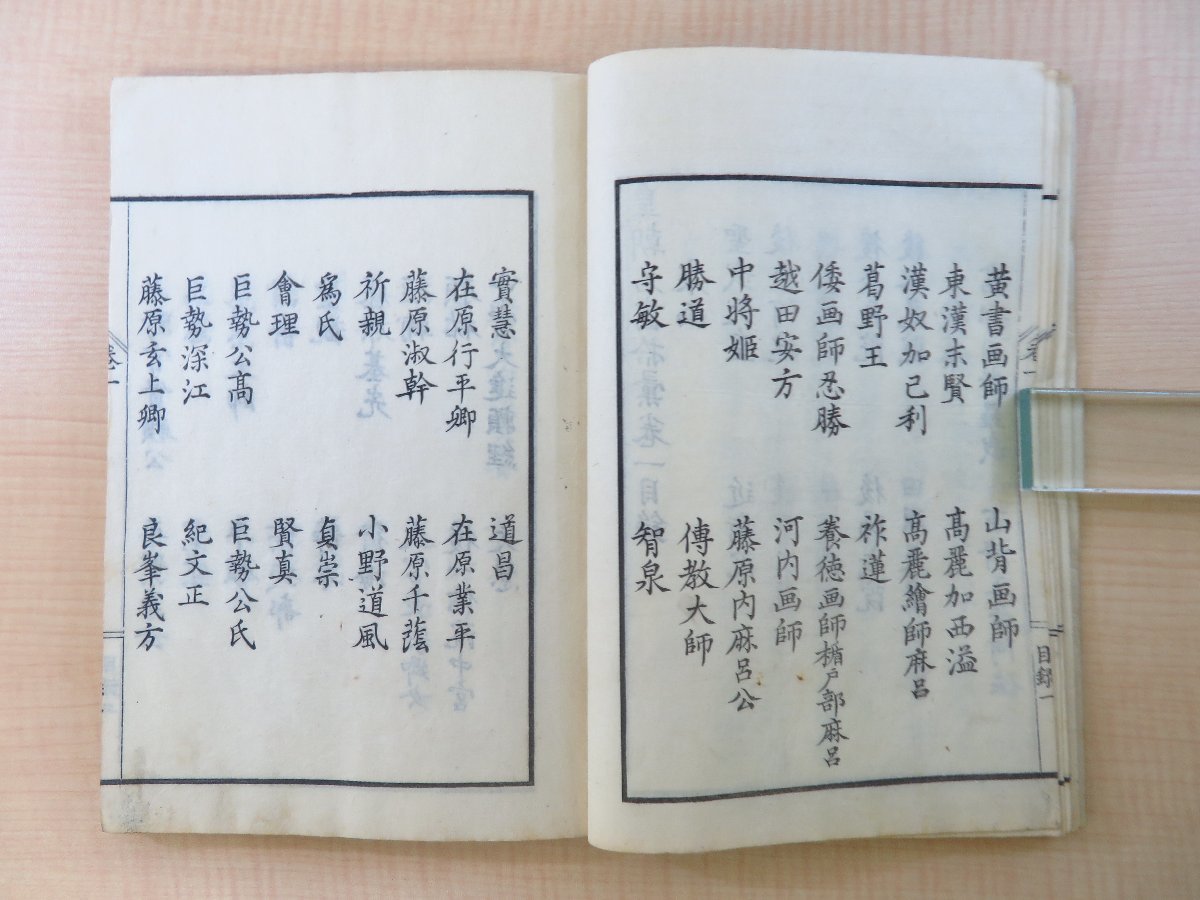 黄書画師 山背画師
東漢末賢 髙麗加西溢
漢奴加己利 髙麗繪師麻呂
葛野王 祚蓮
倭画師忍勝 養徳画師楯戸部麻呂
越田安方 河内画師
中將姫 藤原内麻呂公
勝道 傳教大師
守敏 智泉
目録一
實慧 道昌
在原行平卿 在原業平
藤原淑幹 藤原千蔭
祈親 小野道風
為氏 貞崇
會理 賢真
巨勢公髙 巨勢公氏
巨勢深江 紀文正
藤原玄上卿 良峯義方
卷一